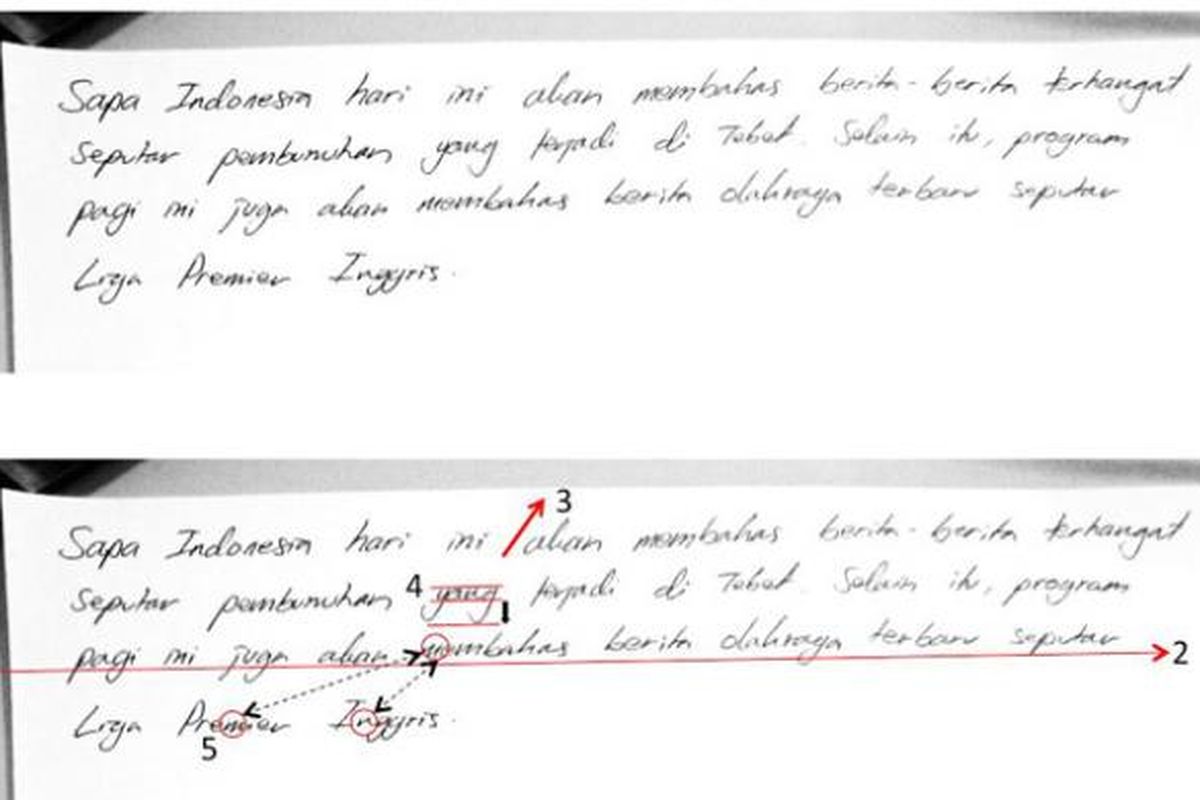 Sapa Indonesia hari ini akan membahas berita-berita terhangat
Seputar pembunuhan yang terjadi di Tebet. Selain itu, program
pagi ini juga akan membahas berita olahraga terbaru seputar
Liga Premier Inggris.
3
Sapa Indonesia hari ini akan membahas berita-berita terhangat
Seputar pembunuhan 4 yang 1 terjadi di Tebet. Selain itu, program
pagi ini juga akan membahas berita olahraga terbaru seputar
2
Liga Premier Inggris.
5